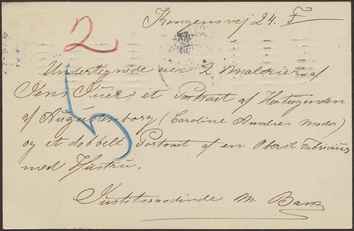 2
Kongensvej 24. F
Undertegnede ejer 2 Malerier af
Jens Juel, et Portræt af Hertuginden
af Augustenborg (Caroline Amalies Moder)
og et dobbelt Portræt af en Oberst Fabricius
med Hustru.
5
Justitsraadinde M